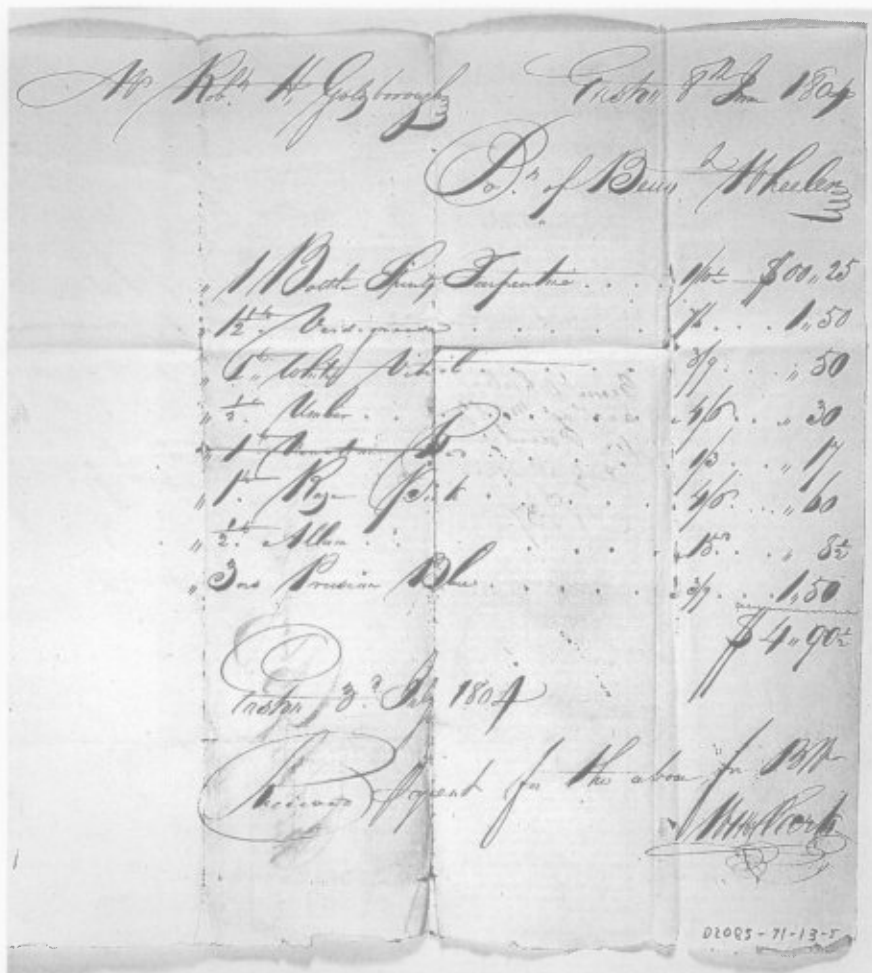 Mr Robt H, Goldsborough Easton 8th June 1804
Bot of Benn Wheeler
" 1 Bottle Spirits Turpentine .... $00,,25
" 1/2 lb Verdigreace 1,,50
" 1 lb White Vitriol 3/9 ,,50
" 1/2 Umber 4/6 ,,30
" 1 lb 1/3 ,,17
" 1 lb Rose Pink 4/6 ,,60
" 1/2 lb Allum ,, 8½
" 3 oz Prusian Blue 3/9 1,,50
$4,,90½
Easton 3d July 1804
Received payment for the above for BW
D2085-71-13-5